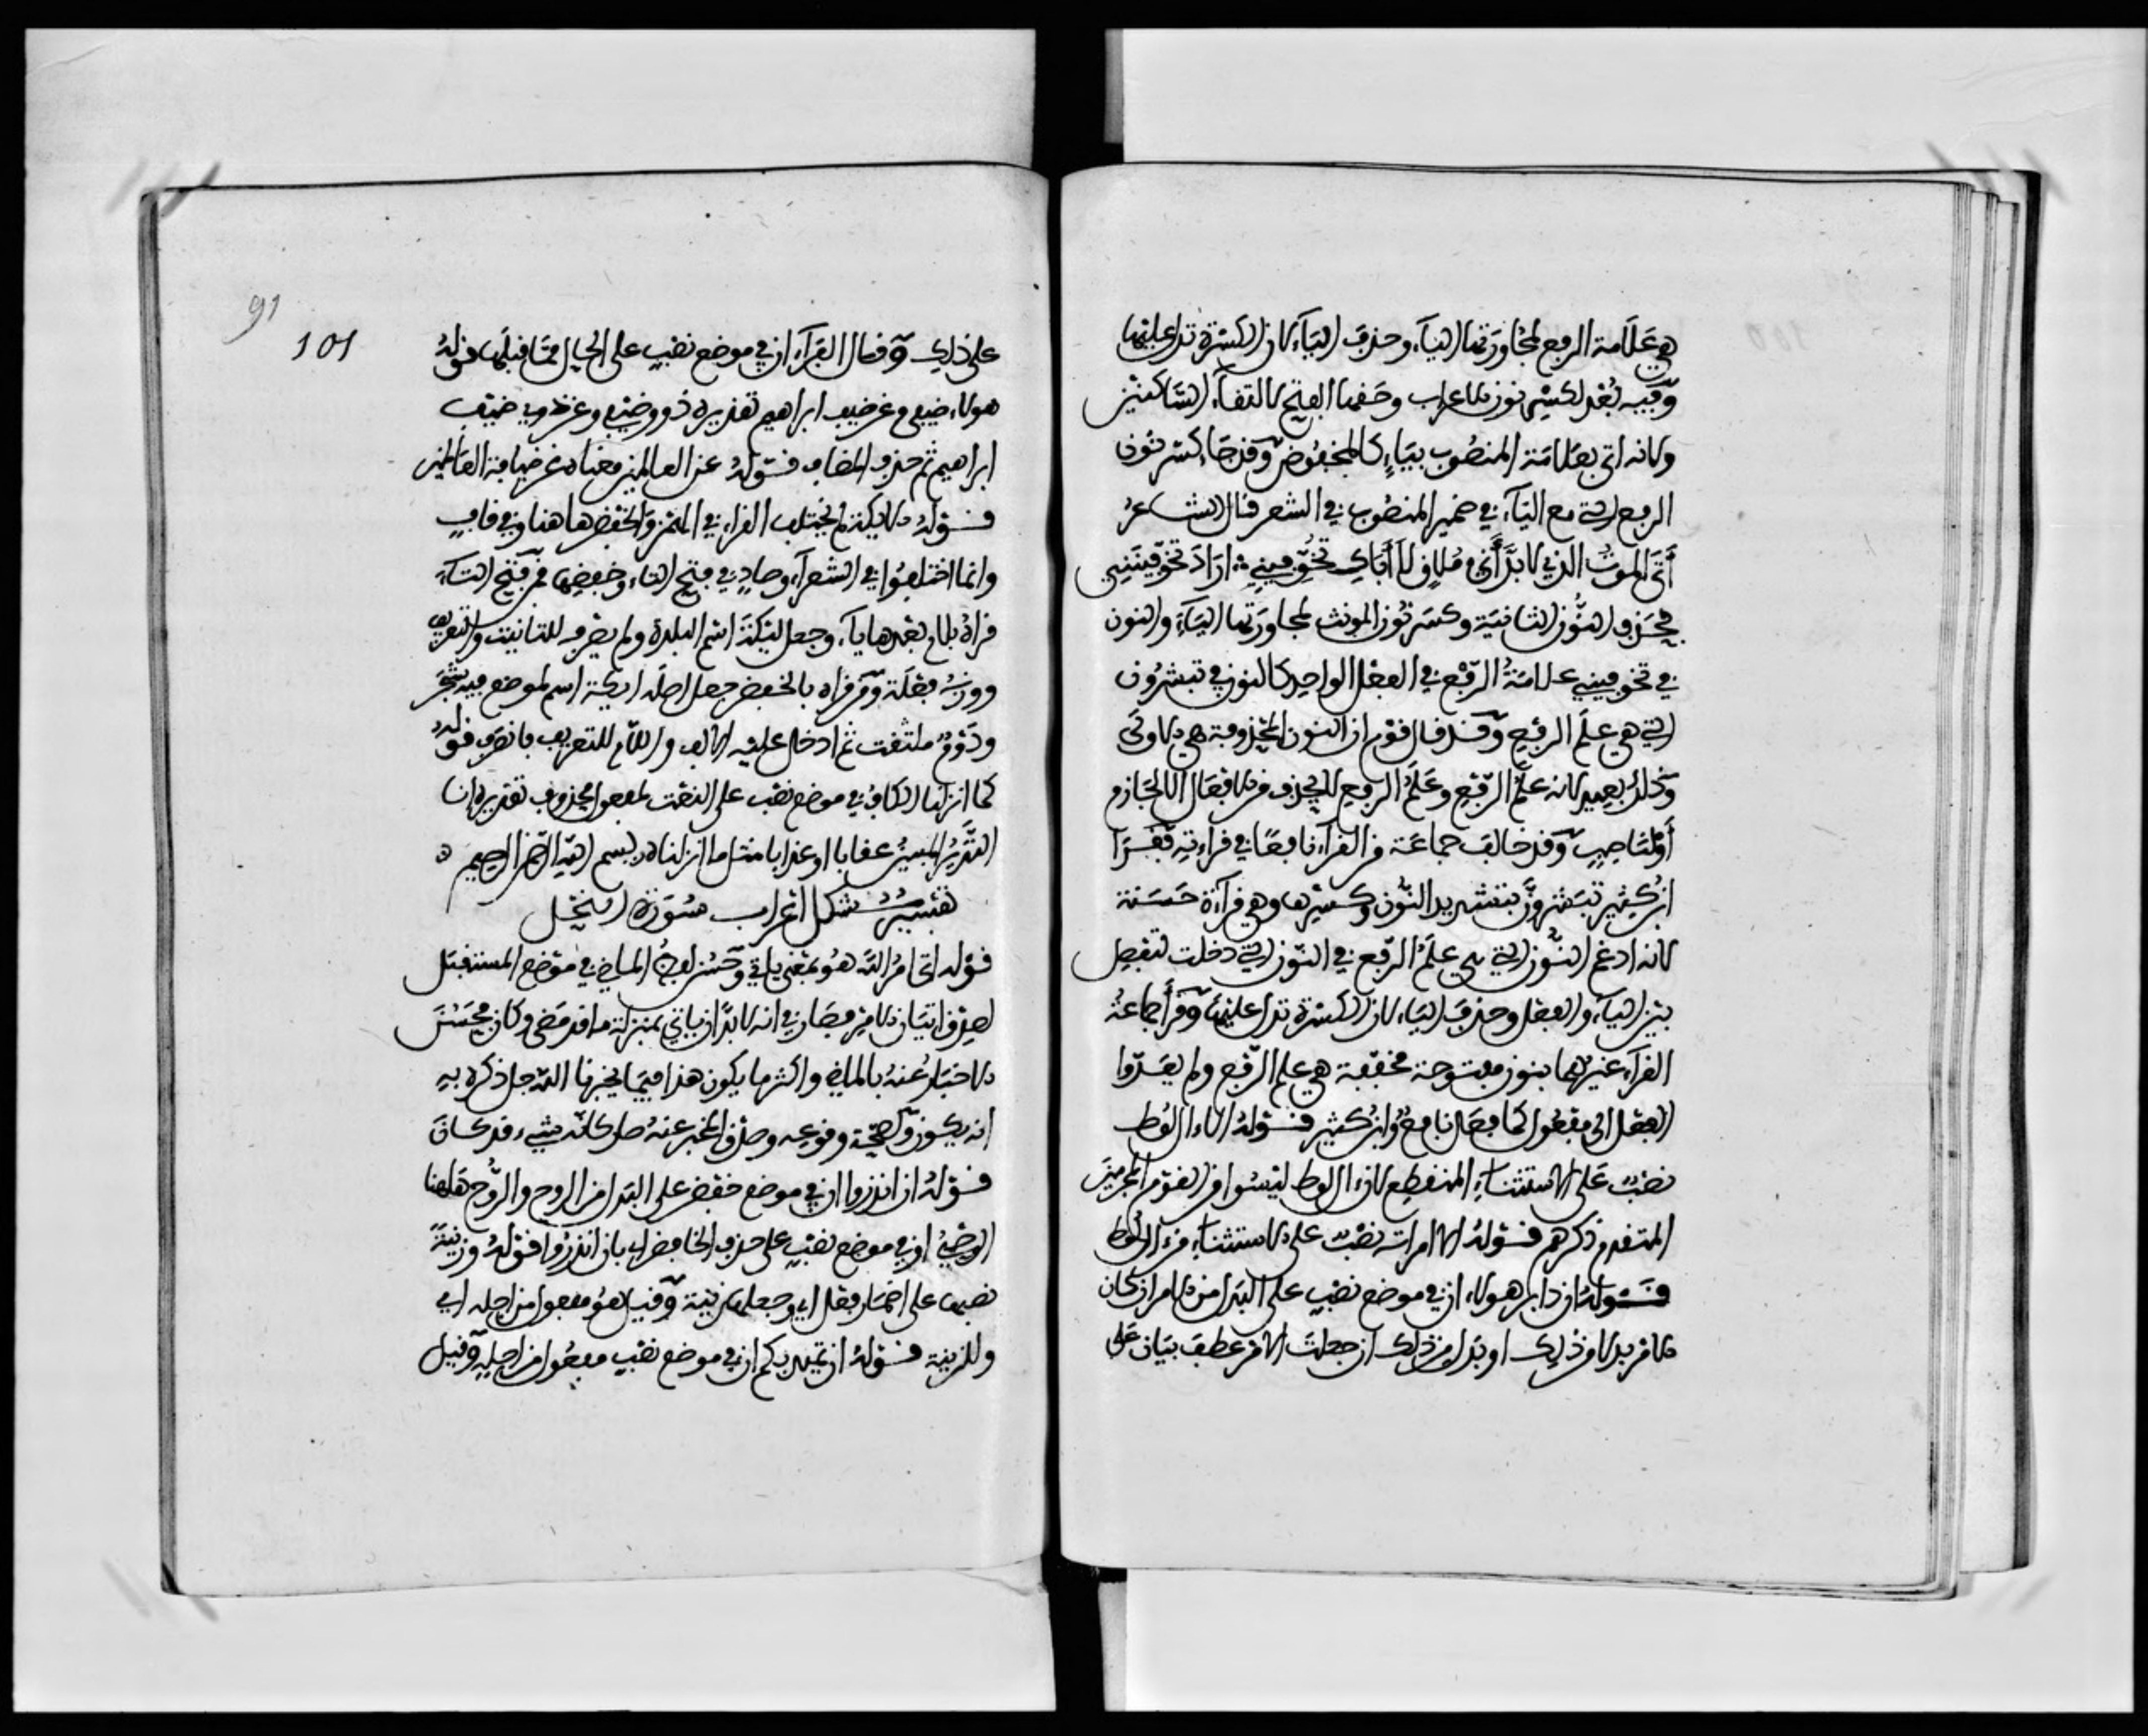 هي علامة الرفع لمجاورتها الياء وحذف الياء لان الكسرة تدل عليها
وفيه بعد لكسر نون الاعراب وحقها الفتح لالتقاء الساكنين
ولانه اتى بعلامة المنصوب بياء كالمخفوض وقد جاء كسر نون
الرفع التي مع الياء في ضمير المنصوب في الشعر قال الشاعر
أبالموت الذي لا بد أني ملاق لا أباك تخوفيني ∴ اراد تخوفينني
فحذف النون الثانية وكسر نون المونث لمجاورتها الياء والنون
في تخوفيني علامة الرفع في الفعل الواحد كالنون في تبشرون
التي هي علم الرفع وقد قال قوم ان النون المحذوفة هي الاولى
وذلك بعيد لانه علم الرفع وعلم الرفع لا يحذف من الافعال الا لجازم
أو لناصب وقد خالف جماعة من القراء نافعا في قراءته فقرا
ابن كثير تبشرون بتشديد النون وكسرها وهي قراءة حسنة
لانه ادغم النون التي هي علم الرفع في النون التي دخلت لتفصل
بين الياء والفعل وحذف الياء لان الكسرة تدل عليها وقرأ جماعة
القراء غيرهما بنون مفتوحة مخففة هي علم الرفع ولم يعدوا
الفعل الى مفعول كما فعل نافع وابن كثير قوله الا ءال لوط
نصب على الاستثناء المنقطع لان ءال لوط ليسوا من القوم المجرمين
المتقدم ذكرهم قوله الا امراته نصب على الاستثناء من ءال لوط
قوله ان دابر هولاء ان في موضع نصب على البدل من الامر ان كان
الامر بدلا من ذلك او بدل من ذلك ان جعلت الامر عطف بيان على
91
101
على ذلك وقال الفراء ان في موضع نصب على الحال مما قبلها قوله
هولاء ضيفي وعن ضيف ابراهيم تقديره ذوو ضيفي وعن ذوي ضيف
ابراهيم ثم حذف المضاف قوله عن العالمين معناه عن ضيافة العالمين
قوله الايكة لم يختلف القراء في الهمز والخفض هاهنا وفي قاف
وانما اختلفوا في الشعراء وصاد في فتح التاء وخفضها فمن فتح التاء
قراه بلام بعدها ياء وجعل ليكة اسم البلدة ولم يصرفه للتانيث والتعريف
ووزنه فعلة ومن قراه بالخفض جعل اصله ايكة اسم لموضع فيه شجر
ودوم ملتف ثم ادخل عليه الالف واللام للتعريف فانصرف قوله
كما انزلنا الكاف في موضع نصب على النعت لمفعول محذوف تقديره انا
النذير المبين عقابا او عذابا مثل ما انزلناه بسم الله الرحمن الرحيم
تفسير مشكل اعراب سورة النحل
قوله اتى امر الله هو بمعنى ياتي وحسن لفظ الماضي في موضع المستقبل
لصدق اتيان الامر فصار في انه لا بد ان ياتي بمنزلة ما قد مضى وكان فحسن
الاخبار عنه بالماضي واكثر ما يكون هذا فيما يخبرنا الله جل ذكره به
انه يكون فلصحة وقوعه وصدق المخبر عنه صار كانه شيء قد كان
قوله ان انذروا ان في موضع خفض على البدل من الروح والروح هاهنا
الوحي او في موضع نصب على حذف الخافض اي بان انذروا قوله وزينة
نصبها على اضمار فعل اي وجعلها زينة وقيل هو مفعول من اجله اي
وللزينة قوله ان تميد بكم ان في موضع نصب مفعول من اجله وقيل